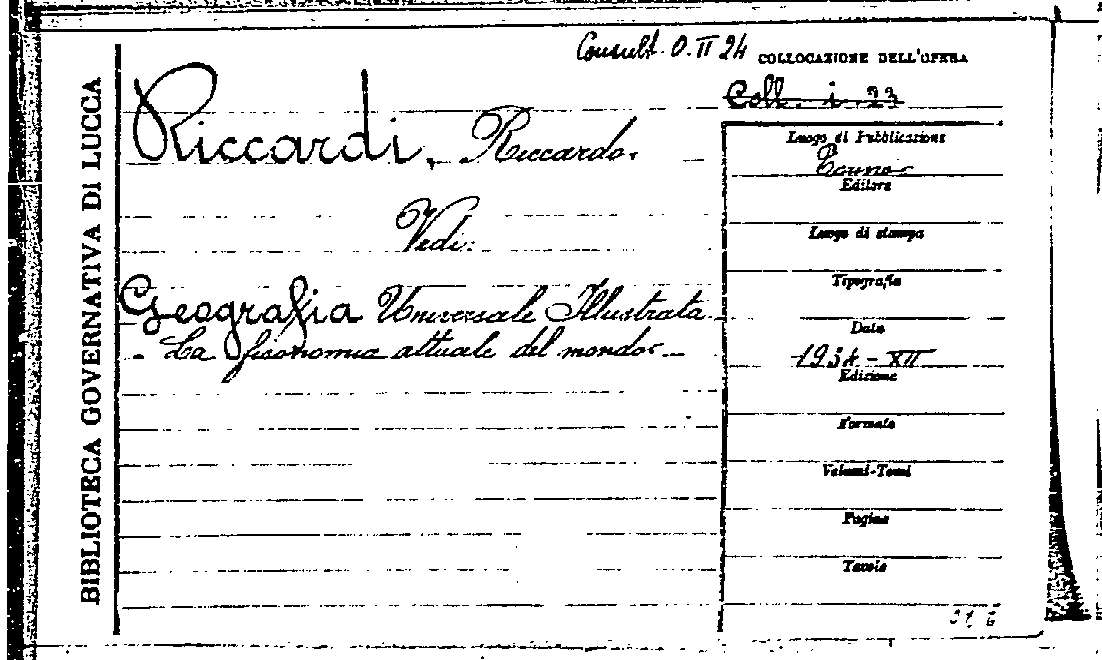 BIBLIOTECA GOVERNATIVA DI LUCCA
Consult. O. II 24
COLLOCAZIONE DELL'OPERA
Coll. i. 23
Riccardi, Riccardo.
Vedi:
Geografia Universale Illustrata
- La fisonomia attuale del mondo -
Luogo di Pubblicazione
Torino
Editore
Luogo di stampa
Tipografia
Data
1934 - XII
Edizione
Formato
Volumi-Tomi
Pagine
Tavole